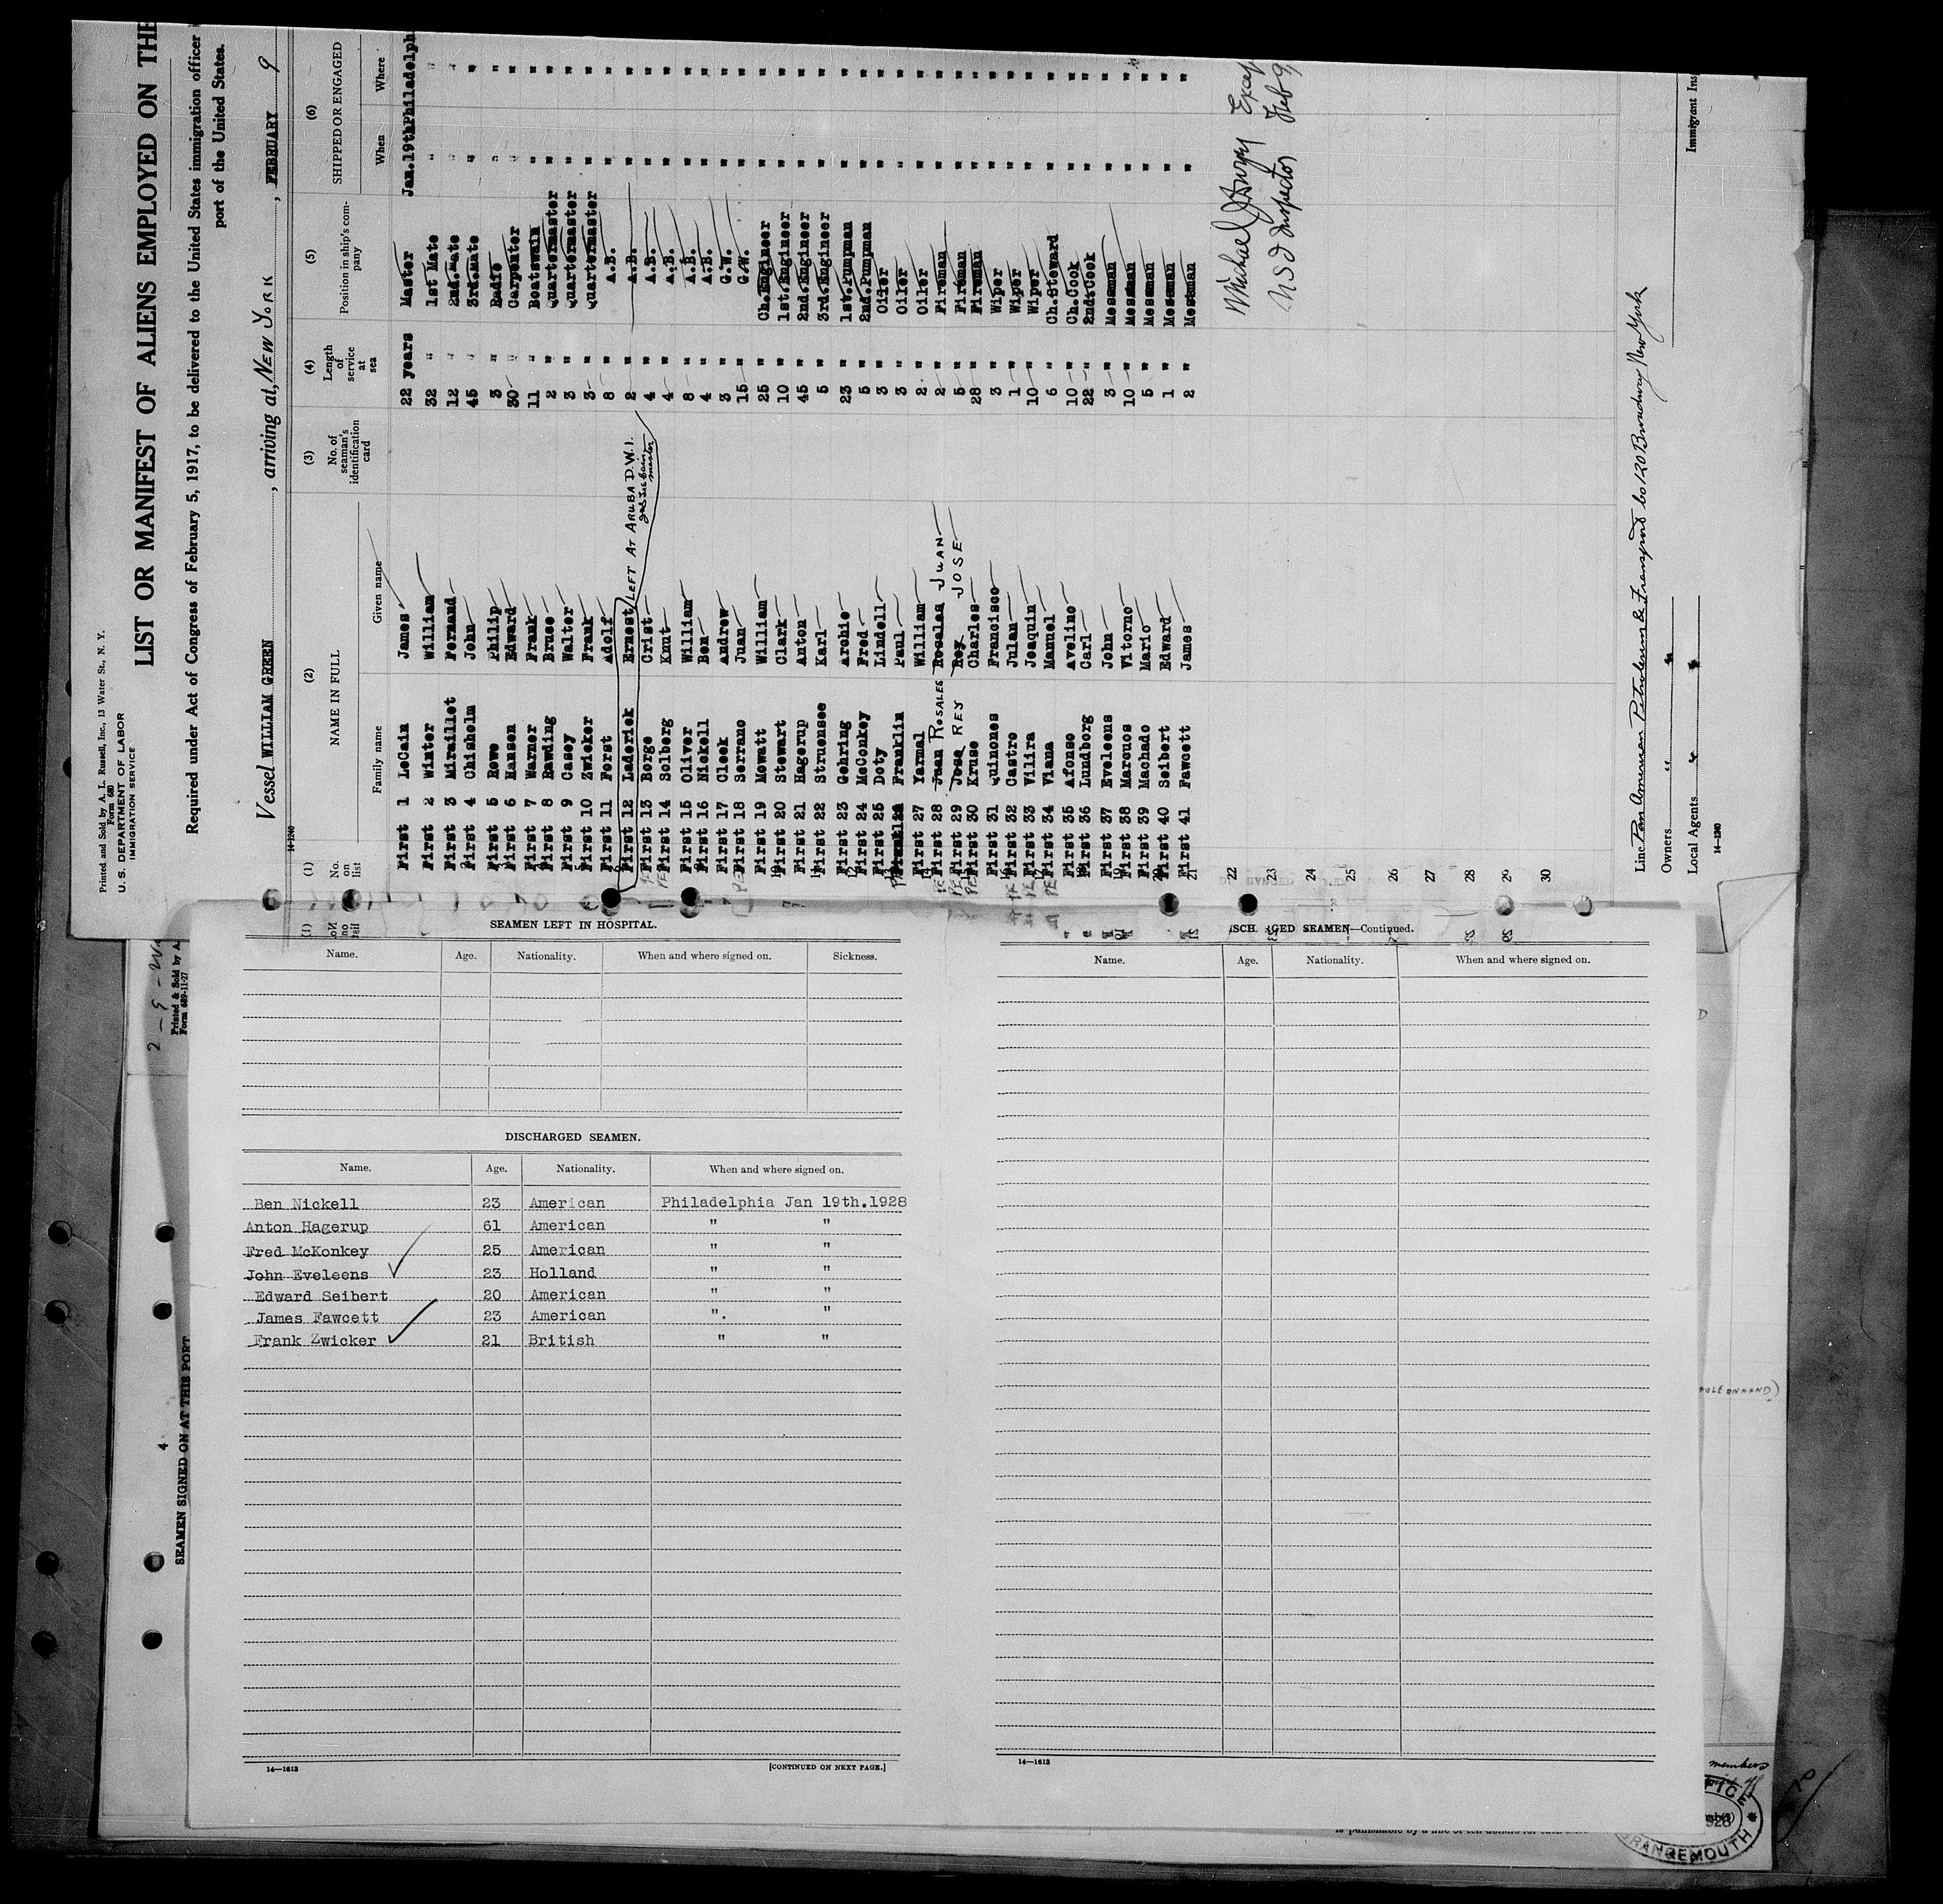 Printed and Sold by A. L. Russell, Inc., 13 Water St., N. Y.
Form 680
U. S. DEPARTMENT OF LABOR
IMMIGRATION SERVICE
LIST OR MANIFEST OF ALIENS EMPLOYED ON THE
Required under Act of Congress of February 5, 1917, to be delivered to the United States immigration officer
port of the United States.
Vessel WILLIAM GREEN, arriving at, NEW YORK, FEBRUARY 9
14-1240
(1) (2) (3) (4) (5) (6)
No. on list NAME IN FULL No. of seaman's identification card Length of service at sea Position in ship's company SHIPPED OR ENGAGED
Family name Given name When Where
First 1 LeCain James 22 years Master Jan.19th Philadelph
First 2 Winter William 32 " 1st Mate " "
First 3 Miraillet Fernand 12 " 2nd.Mate " "
First 4 Chisholm John 45 " 3rd.Mate " "
First 5 Rowe Philip 3 " Radio " "
First 6 Hansen Edward 30 " Carpenter " "
First 7 Warner Frank 11 " Boatswain " "
First 8 Rawding Bruce 2 " Quartermaster " "
First 9 Casey Walter 3 " Quartermaster " "
First 10 Zwicker Frank 3 " Quartermaster " "
First 11 Forst Adolf 8 " A.B. " "
First 12 Laderick Ernest LEFT AT ARUBA D.W.I. 2 " A.B. " "
First 13 Borge Crist 4 " A.B. " "
First 14 Solberg Knut 4 " A.B. " "
First 15 Oliver William 8 " A.B. " "
First 16 Nickell Ben 4 " A.B. " "
First 17 Cleek Andrew 3 " G.W. " "
First 18 Serrano Juan 15 " G.W. " "
First 19 Mowatt William 25 " Ch.Engineer " "
First 20 Stewart Clark 10 " 1st.Engineer " "
First 21 Hagerup Anton 45 " 2nd.Engineer " "
First 22 Struensee Karl 5 " 3rd.Engineer " "
First 23 Gehring Archie 23 " 1st.Pumpman " "
First 24 McConkey Fred 5 " 2nd.Pumpman " "
First 25 Doty Lindell 3 " Oiler " "
Franklin Paul 3 " Oiler " "
First 27 Yarmal William 2 " Oiler " "
First 28 Juan ROSALES Rosales JUAN 2 " Fireman " "
First 29 Jose REY Rey JOSE 5 " Fireman " "
First 30 Kruse Charles 28 " Fireman " "
First 31 Quinones Francisco 3 " Wiper " "
First 32 Castro Julan 1 " Wiper " "
First 33 Vilira Joaquin 10 " Wiper " "
First 34 Viana Manuel 6 " Ch.Steward " "
First 35 Afonso Avelino 10 " Ch.Cook " "
First 36 Lundborg Carl 22 " 2nd.Cook " "
First 37 Eveleens John 3 " Messman " "
First 38 Marcuos Vitorno 10 " Messman " "
First 39 Machado Mario 5 " Messman " "
First 40 Seibert Edward 1 " Messman " "
First 41 Fawcett James 2 " Messman " "
22
23
24
25
26
27
28
29
30
Michael J Dwyer Excep
USI Inspector Feb 9
Line Pan American Petroleum & Transport Co 120 Broadway New York
Owners " "
Local Agents " "
14-1240
Immigrant Ins
Printed & Sold by A
Form 689-11-27
4
SEAMEN SIGNED ON AT THIS PORT
SEAMEN LEFT IN HOSPITAL.
Name. Age. Nationality. When and where signed on. Sickness.
DISCHARGED SEAMEN.
Name. Age. Nationality. When and where signed on.
Ben Nickell 23 American Philadelphia Jan 19th.1928
Anton Hagerup 61 American " "
Fred McKonkey 25 American " "
John Eveleens 23 Holland " "
Edward Seibert 20 American " "
James Fawcett 23 American " "
Frank Zwicker 21 British " "
14—1613 [CONTINUED ON NEXT PAGE.]
ISCH GED SEAMEN—Continued.
Name. Age. Nationality. When and where signed on.
14—1613
members
GRANGEMOUTH